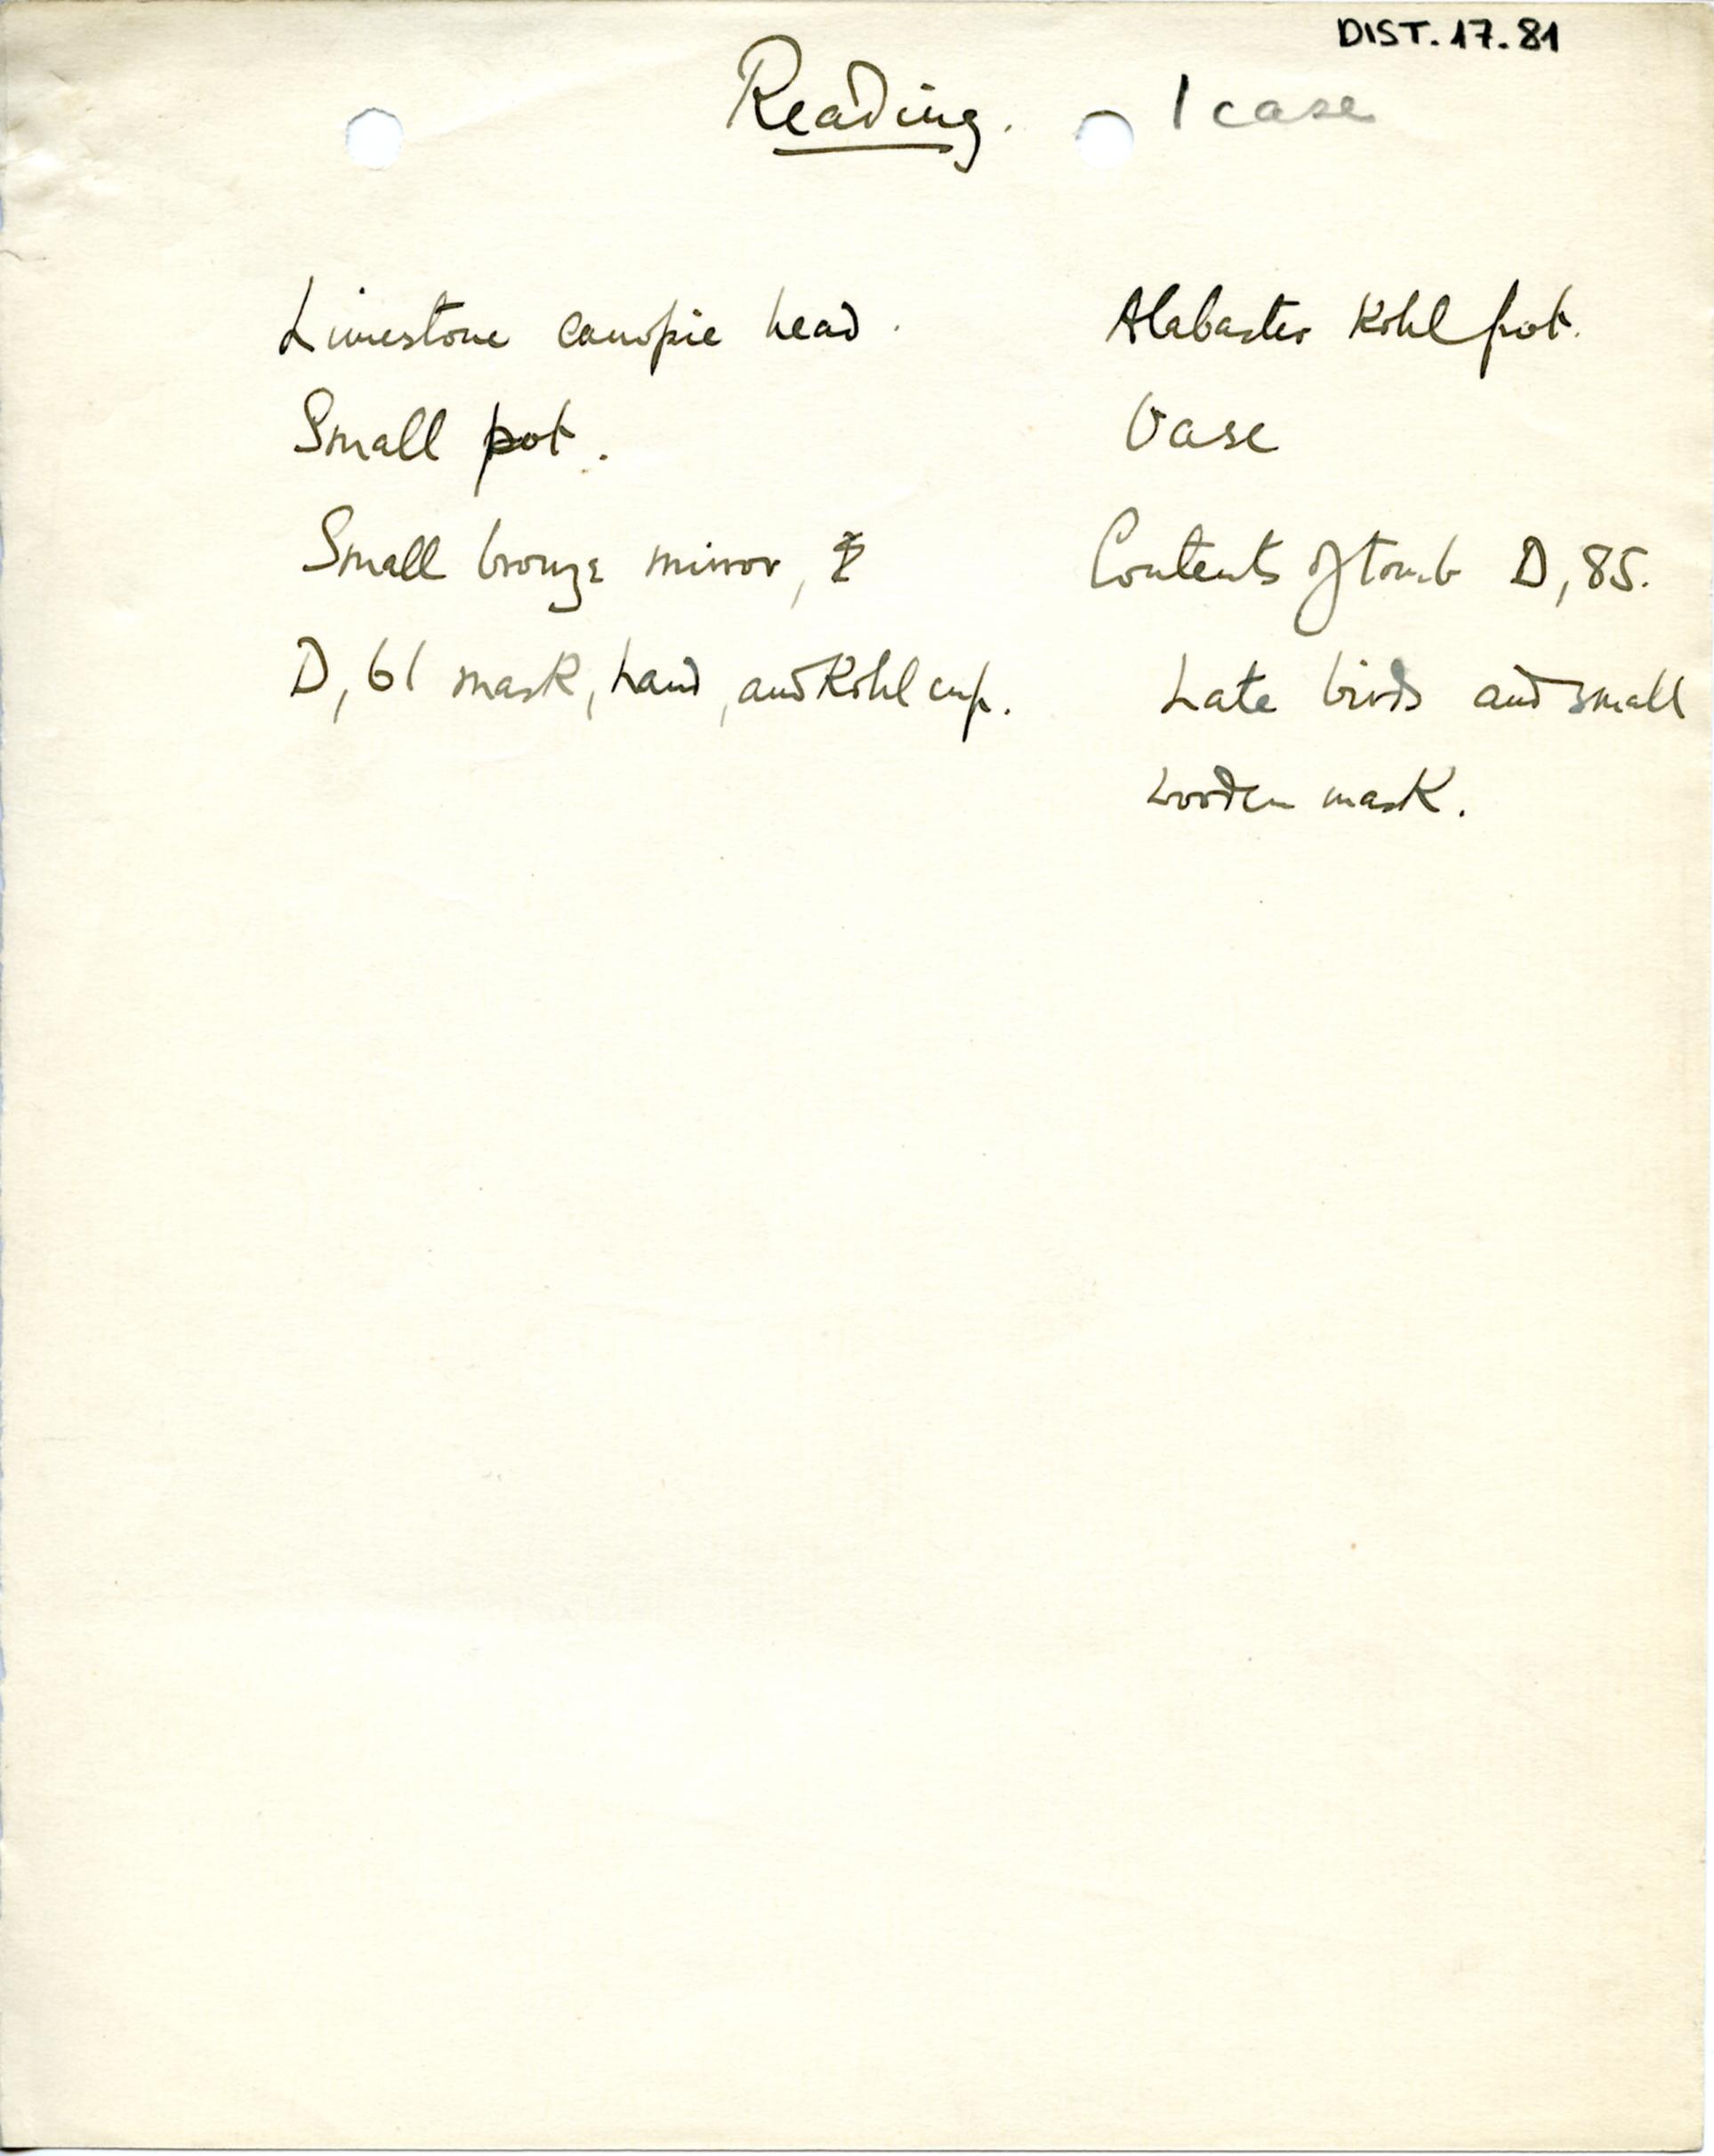 DIST. 17. 81
Reading.
1 case
Limestone canopic head.
Small pot.
Small bronze mirror,
D, 61 mask, hand, and Kohl cup.
Alabaster Kohl pot.
Vase
Contents of tomb D, 85.
Late birds and small
wooden mask.